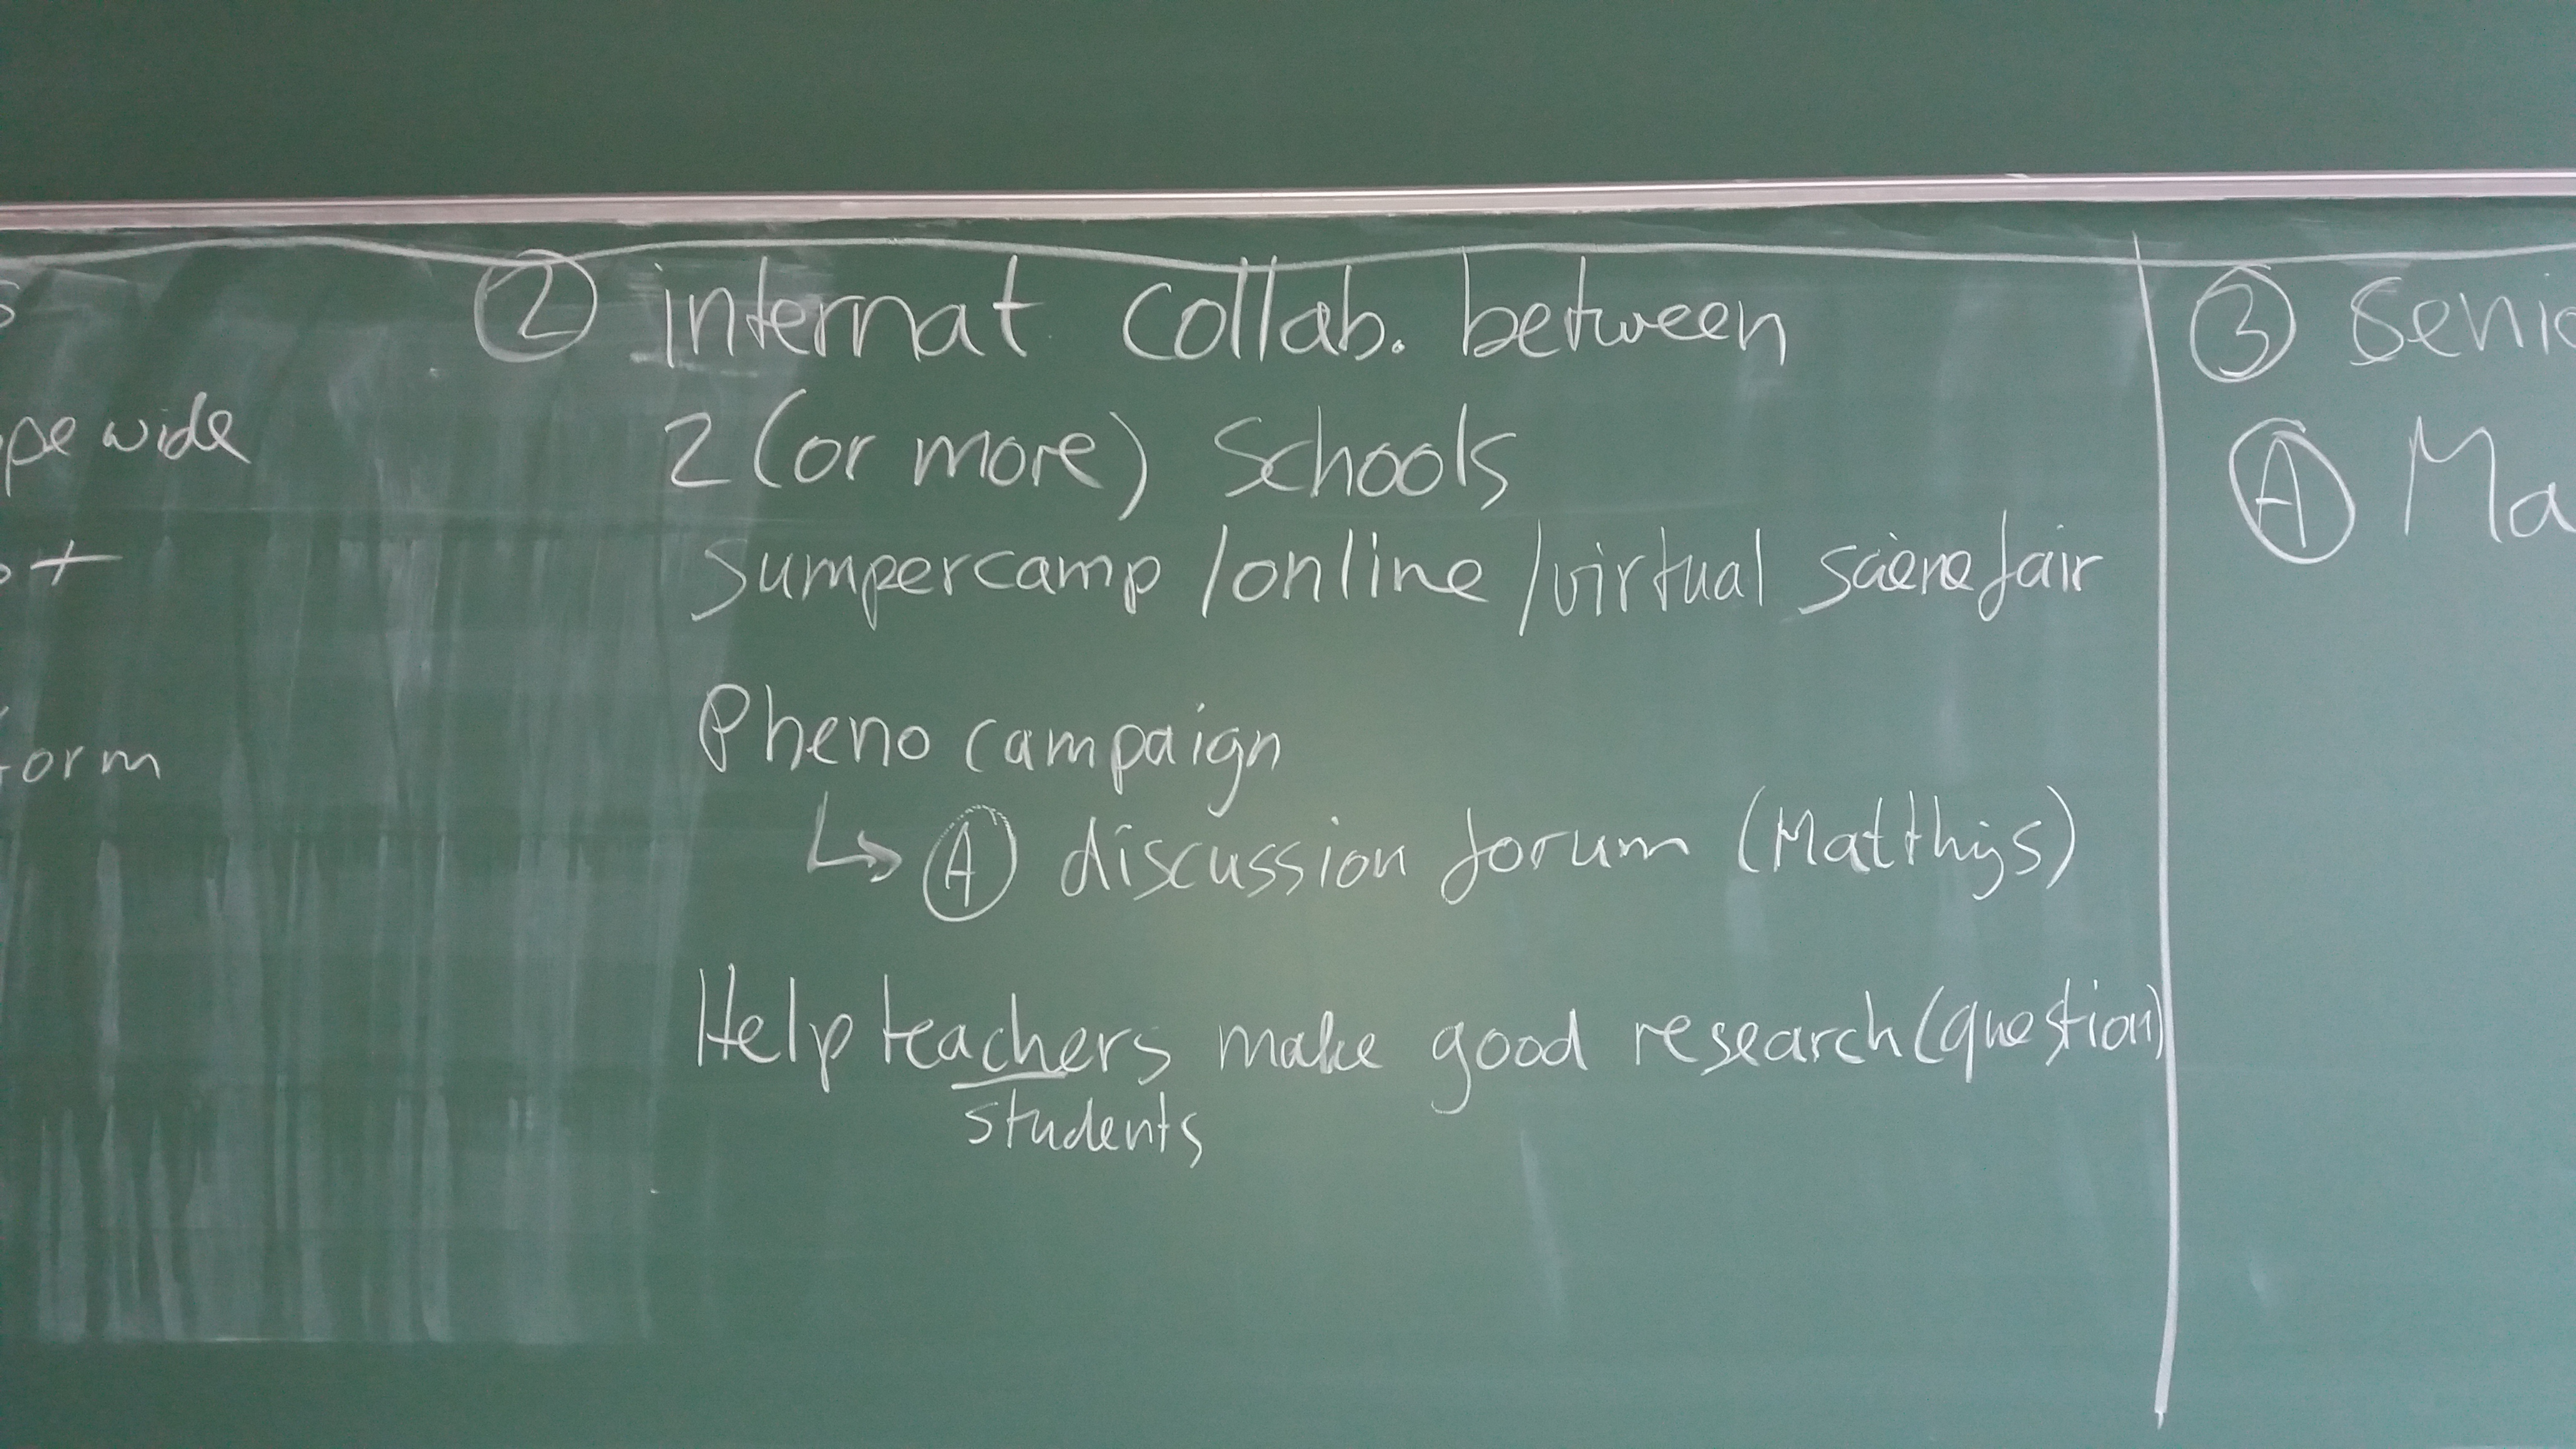 ② internat collab. between
2 (or more) schools
Sumpercamp / online / virtual sciene fair
Pheno campaign
↳ Ⓐ discussion forum (Matthijs)
Help teachers make good research (question)
students
pe wide
+
orm
③ Senio
Ⓐ Ma